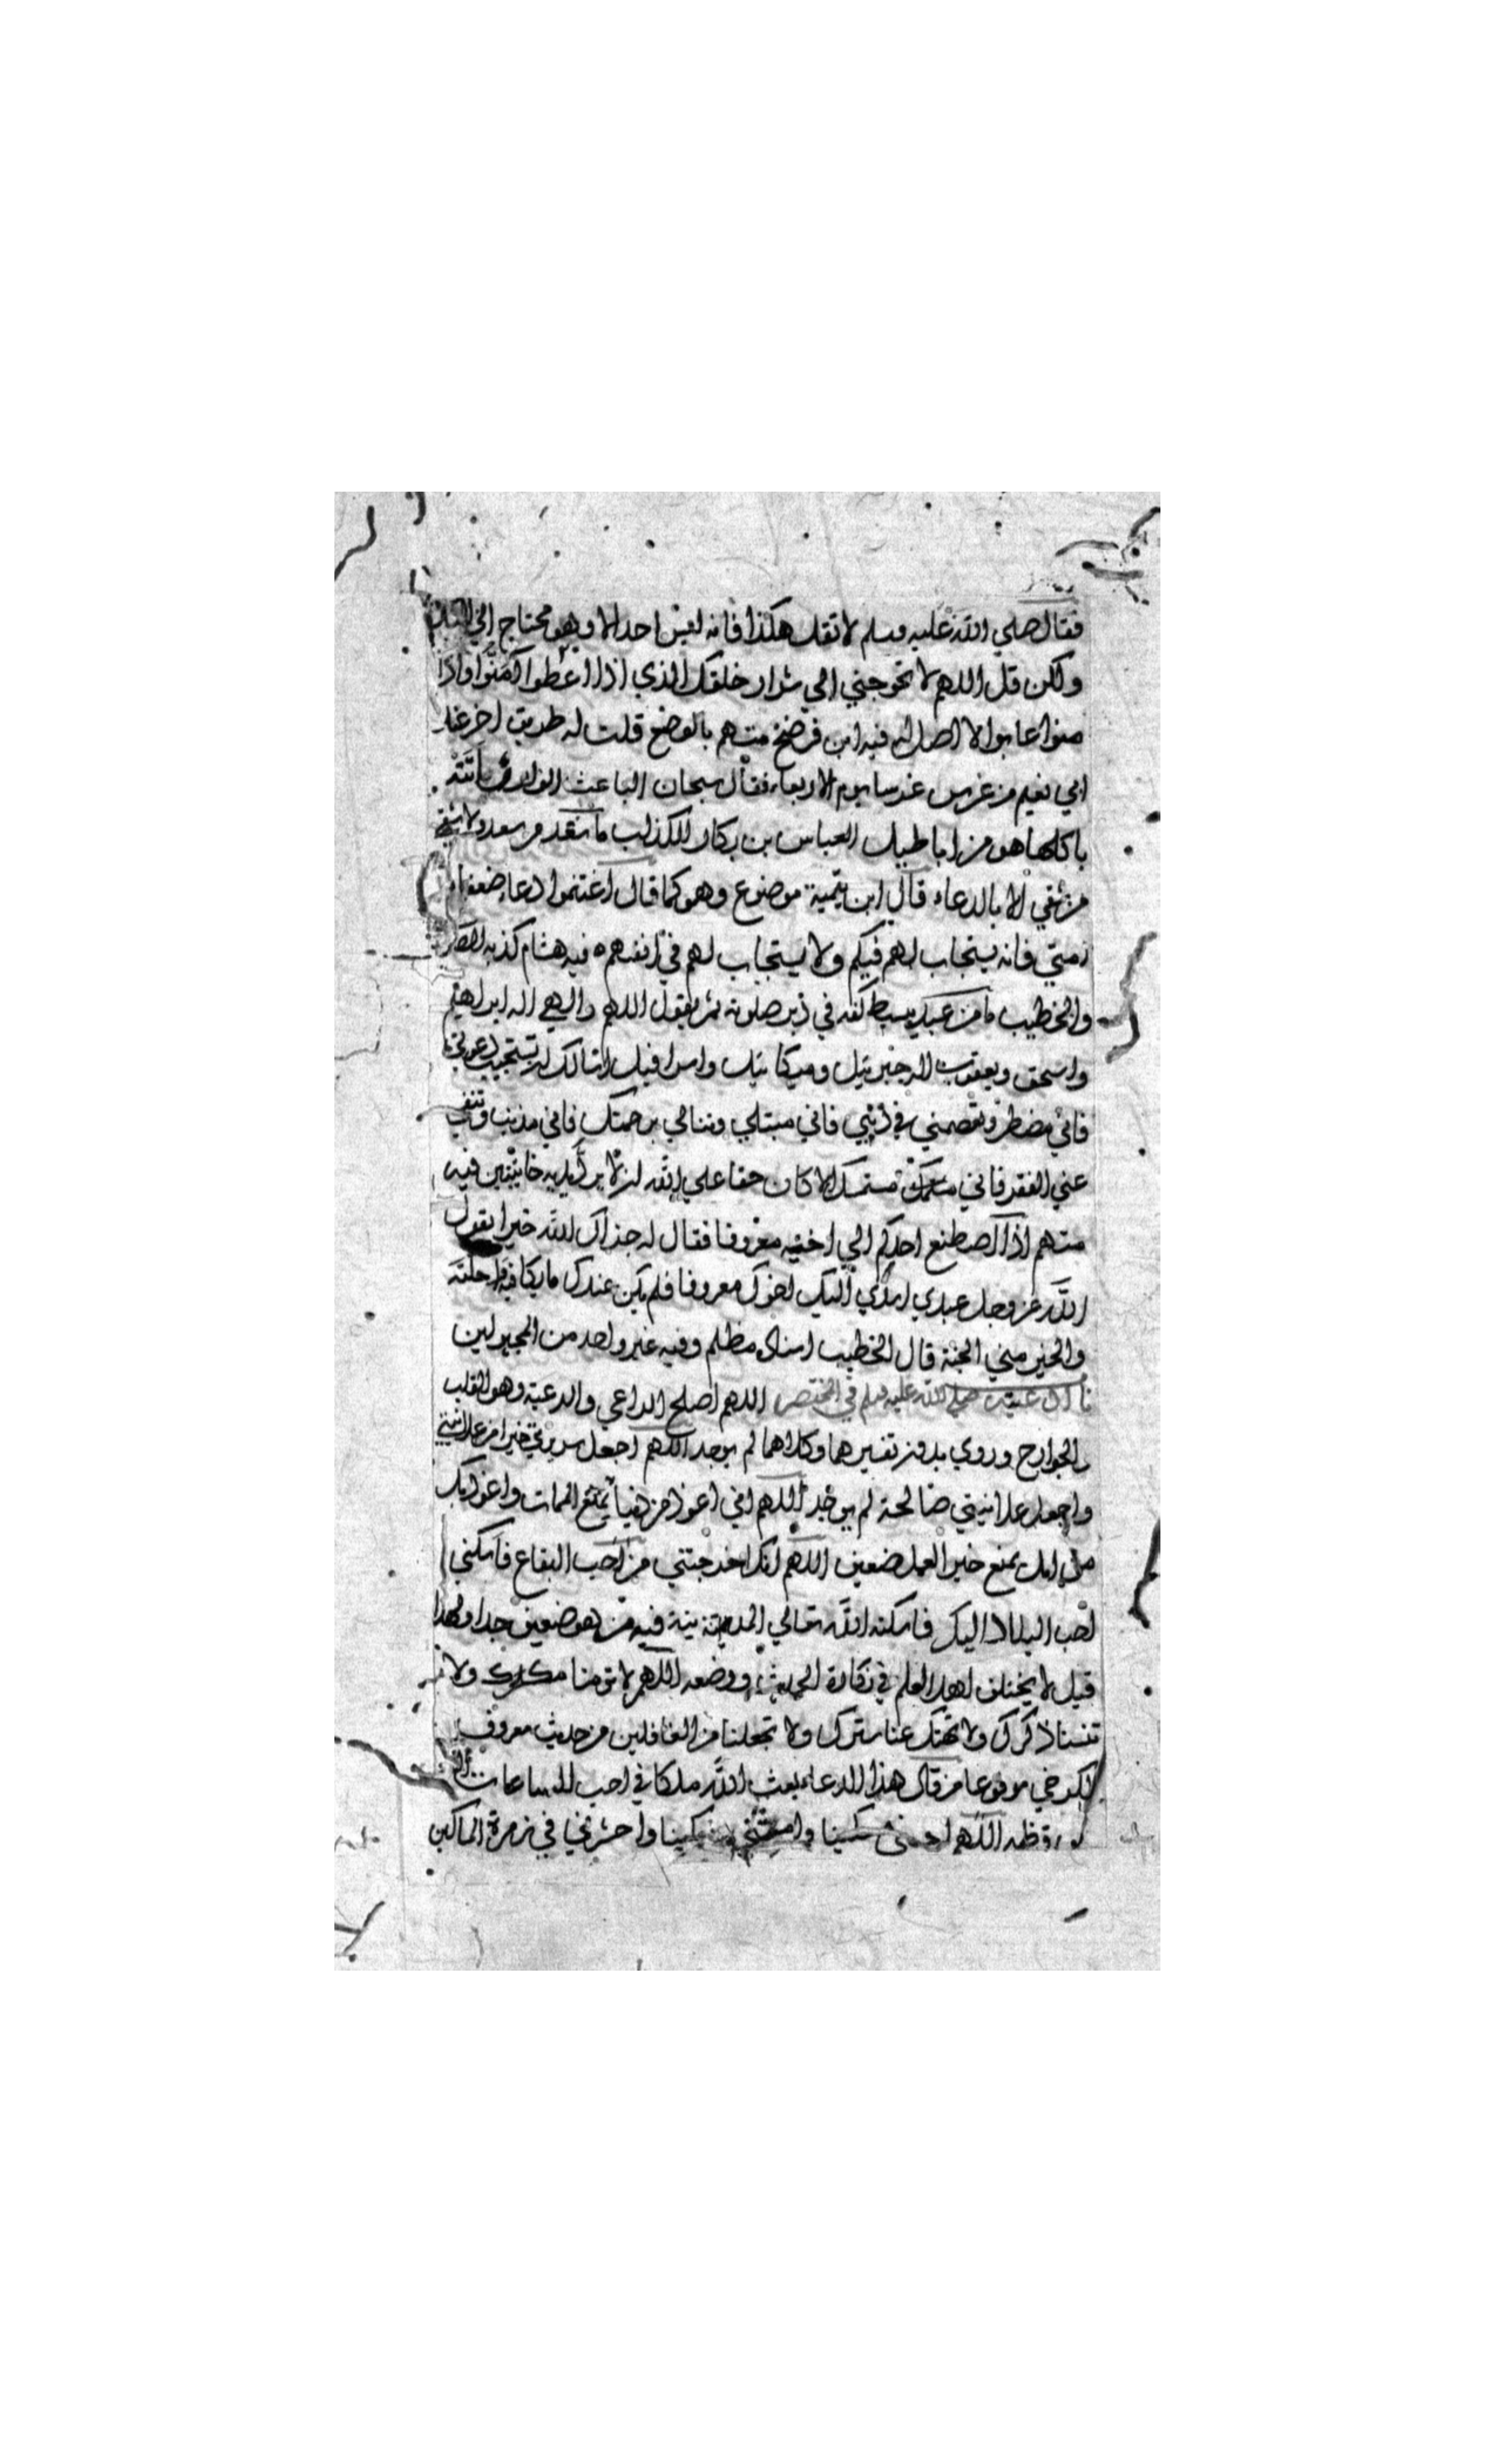 فقال صلي الله عليه وسلم لا تقل هكذا فانه ليس احد الا وهو محتاج الي
ولكن قل اللهم لا تحوجني الي شرار خلقك الذي اذا اعطوا منوا واذا
منوا عابوا لا اصل له فيه ابن فرضخ متهم بالوضع قلت له طريق اخر عند
ابي نعيم من غرس غرسا يوم الاربعاء فقال سبحان الباعث الوارث اتته
باكلها هو من اباطيل العباس بن بكار الكذاب ما سعد من سعد ولا شقي
من شقي الا بالدعاء قال ابن تيمية موضوع وهو كما قال اغتنموا دعاء ضعفاء
امتي فانه يستجاب لهم فيكم ولا يستجاب لهم في انفسهم فيه هشام كذبه
والخطيب ما من عبد يبسط كفه في دبر صلوته ثم يقول اللهم والهي اله ابراهيم
واسحق ويعقوب اله جبرئيل وميكائيل واسرافيل اسالك ان تستجيب دعوتي
فاني مضطر وتعصمني في ديني فاني مبتلي وتنالني برحمتك فاني مذنب وتنفي
عني الفقر فاني متمسك الا كان حقا علي الله ان لا يرد يديه خائبتين فيه
متهم اذا اصطنع احدكم الي اخيه معروفا فقال له جزاك الله خيرا يقول
الله عز وجل عبدي اسدي اليك اخوك معروفا فلم يكن عندك ما يكافيه احلته
والخير مني الجنة قال الخطيب اسناد مظلم وفيه غير واحد من المجهولين
صلي الله عليه وسلم في المختصر اللهم اصلح الراعي والرعية وهو القلب
والجوارح وروي بدون تفسيرهما وكلاهما لم يوجد اللهم اجعل سريرتي خيرا من علانيتي
واجعل علانيتي صالحة لم يوجد اللهم اني اعوذ من دنيا تمنع الممات واعوذ بك
من امل يمنع خير العمل ضعيف اللهم انك اخرجتني من احب البقاع فاسكني
احب البلاد اليك فاسكنه الله تعالي المدينة فيه من هو ضعيف جدا ولهذا
قيل لا يختلف اهل العلم في نكارة الحديث ووضعه اللهم لا تؤمنا مكرك ولا
تنسنا ذكرك ولا تهتك عنا سترك ولا تجعلنا من الغافلين من حديث معروف
الكرخي مرفوعا من قال هذا الدعاء بعث الله ملكا في احب الساعات
اللهم احيني مسكينا وامتني مسكينا واحشرني في زمرة المساكين